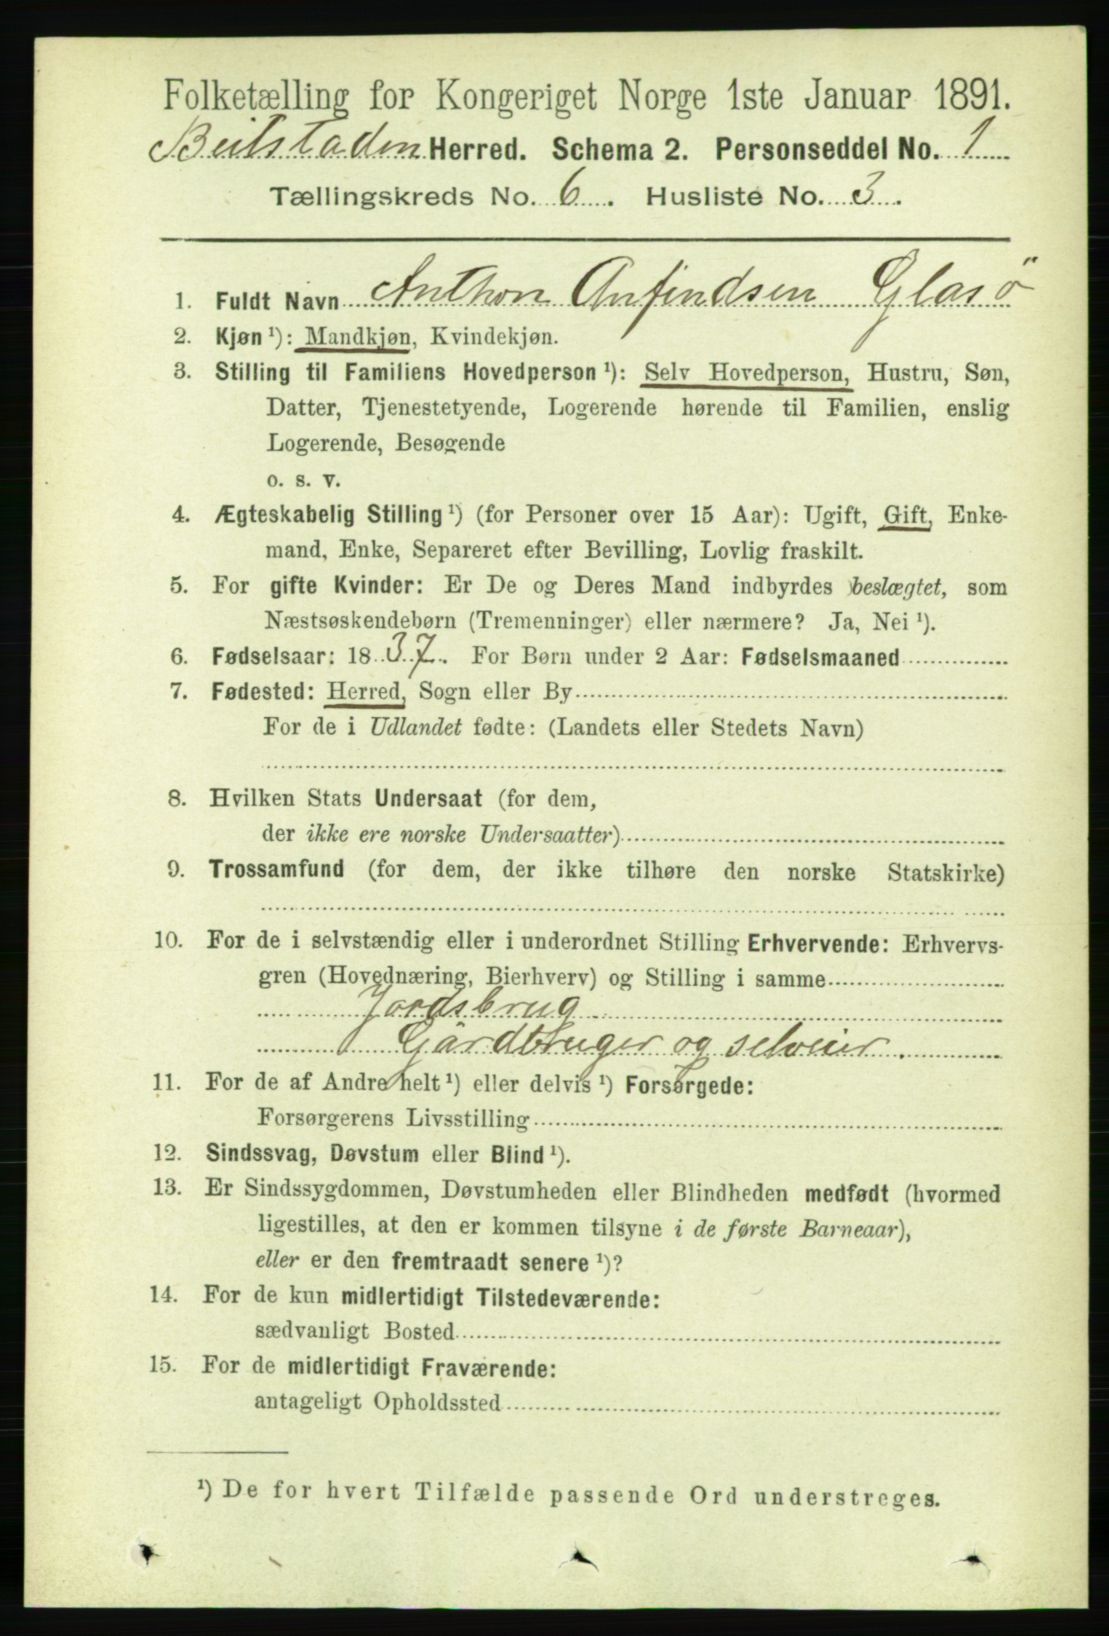 Folketælling for Kongeriget Norge 1ste Januar 1891.
Beitstaden Herred. Schema 2. Personseddel No. 1
Tællingskreds No. 6. Husliste No. 3.
1. Fuldt Navn Anthon Anfindsen Glasö
2. Kjøn ¹): Mandkjøn, Kvindekjøn.
3. Stilling til Familiens Hovedperson ¹): Selv Hovedperson, Hustru, Søn,
Datter, Tjenestetyende, Logerende hørende til Familien, enslig
Logerende, Besøgende
o. s. v.
4. Ægteskabelig Stilling ¹) (for Personer over 15 Aar): Ugift, Gift, Enke-
mand, Enke, Separeret efter Bevilling, Lovlig fraskilt.
5. For gifte Kvinder: Er De og Deres Mand indbyrdes beslægtet, som
Næstsøskendebørn (Tremenninger) eller nærmere? Ja, Nei ¹).
6. Fødselsaar: 1837. For Børn under 2 Aar: Fødselsmaaned
7. Fødested: Herred, Sogn eller By
For de i Udlandet fødte: (Landets eller Stedets Navn)
8. Hvilken Stats Undersaat (for dem,
der ikke ere norske Undersaatter)
9. Trossamfund (for dem, der ikke tilhøre den norske Statskirke)
10. For de i selvstændig eller i underordnet Stilling Erhvervende: Erhvervs-
gren (Hovednæring, Bierhverv) og Stilling i samme
Jordsbrug
Gårdbruger og selveier.
11. For de af Andre helt ¹) eller delvis ¹) Forsørgede:
Forsørgerens Livsstilling
12. Sindssvag, Døvstum eller Blind ¹).
13. Er Sindssygdommen, Døvstumheden eller Blindheden medfødt (hvormed
ligestilles, at den er kommen tilsyne i de første Barneaar),
eller er den fremtraadt senere ¹)?
14. For de kun midlertidigt Tilstedeværende:
sædvanligt Bosted
15. For de midlertidigt Fraværende:
antageligt Opholdssted
¹) De for hvert Tilfælde passende Ord understreges.